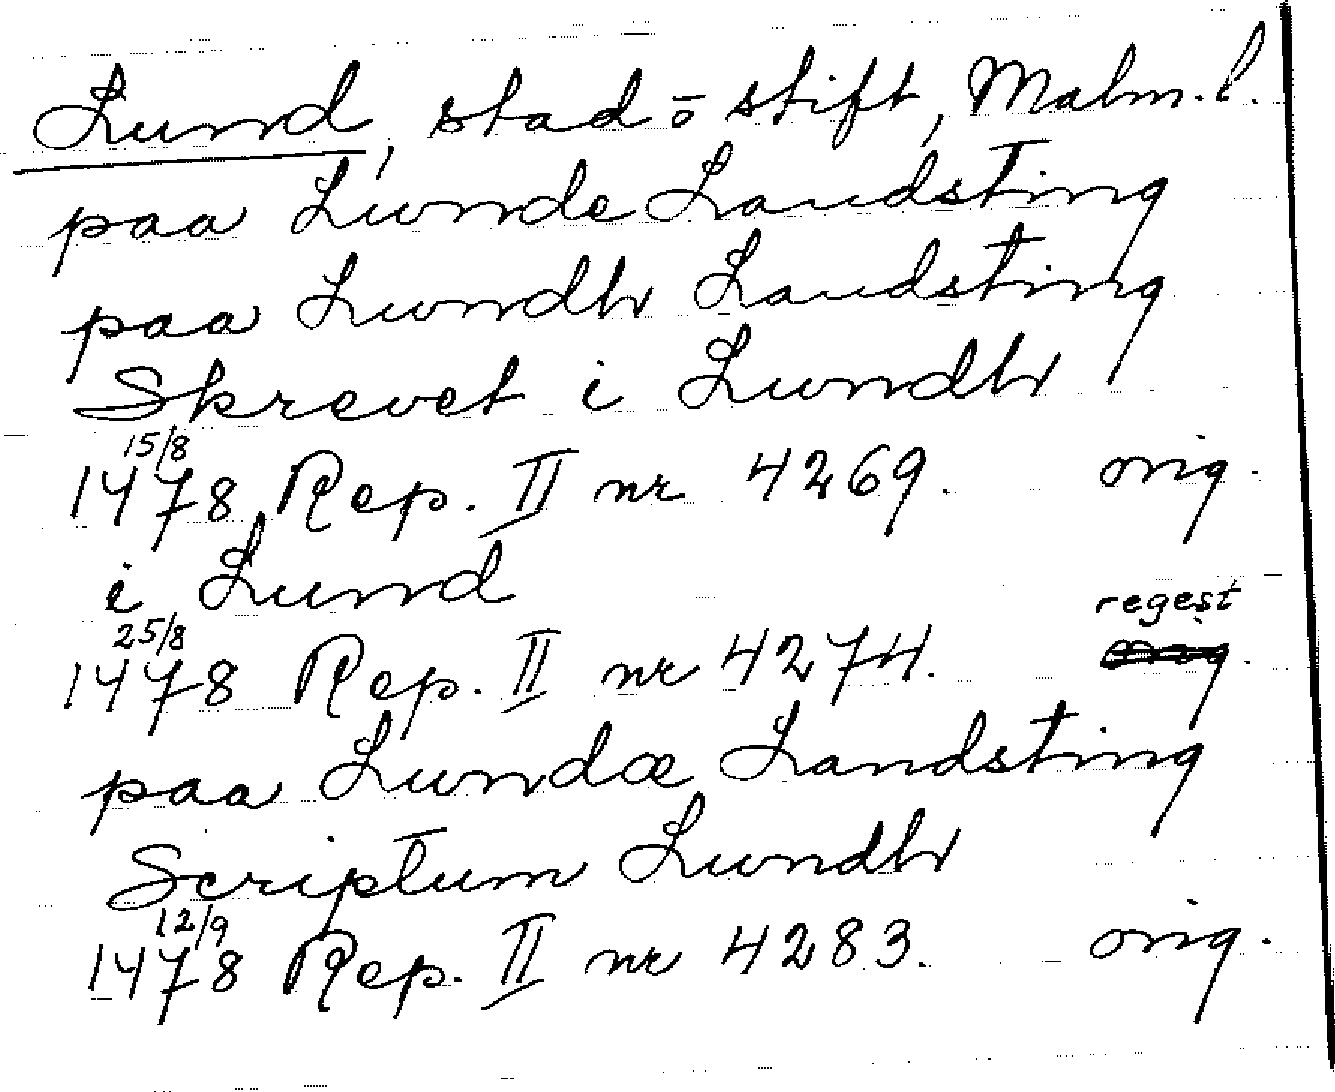 Lund, stad o stift, Malm. l.
paa Lunde Landsting
paa Lundh Landsting
Skrevet i Lundh
15/8
1478 Rep. II nr 4269. orig.
i Lund
25/8 regest
1478 Rep. II nr 4274. orig.
paa Lundæ Landsting
Scriptum Lundh
12/9
1478 Rep. II nr 4283. orig.